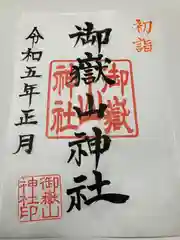 初詣
御嶽山神社
御嶽
神社
令和五年正月
御嶽山
神社印